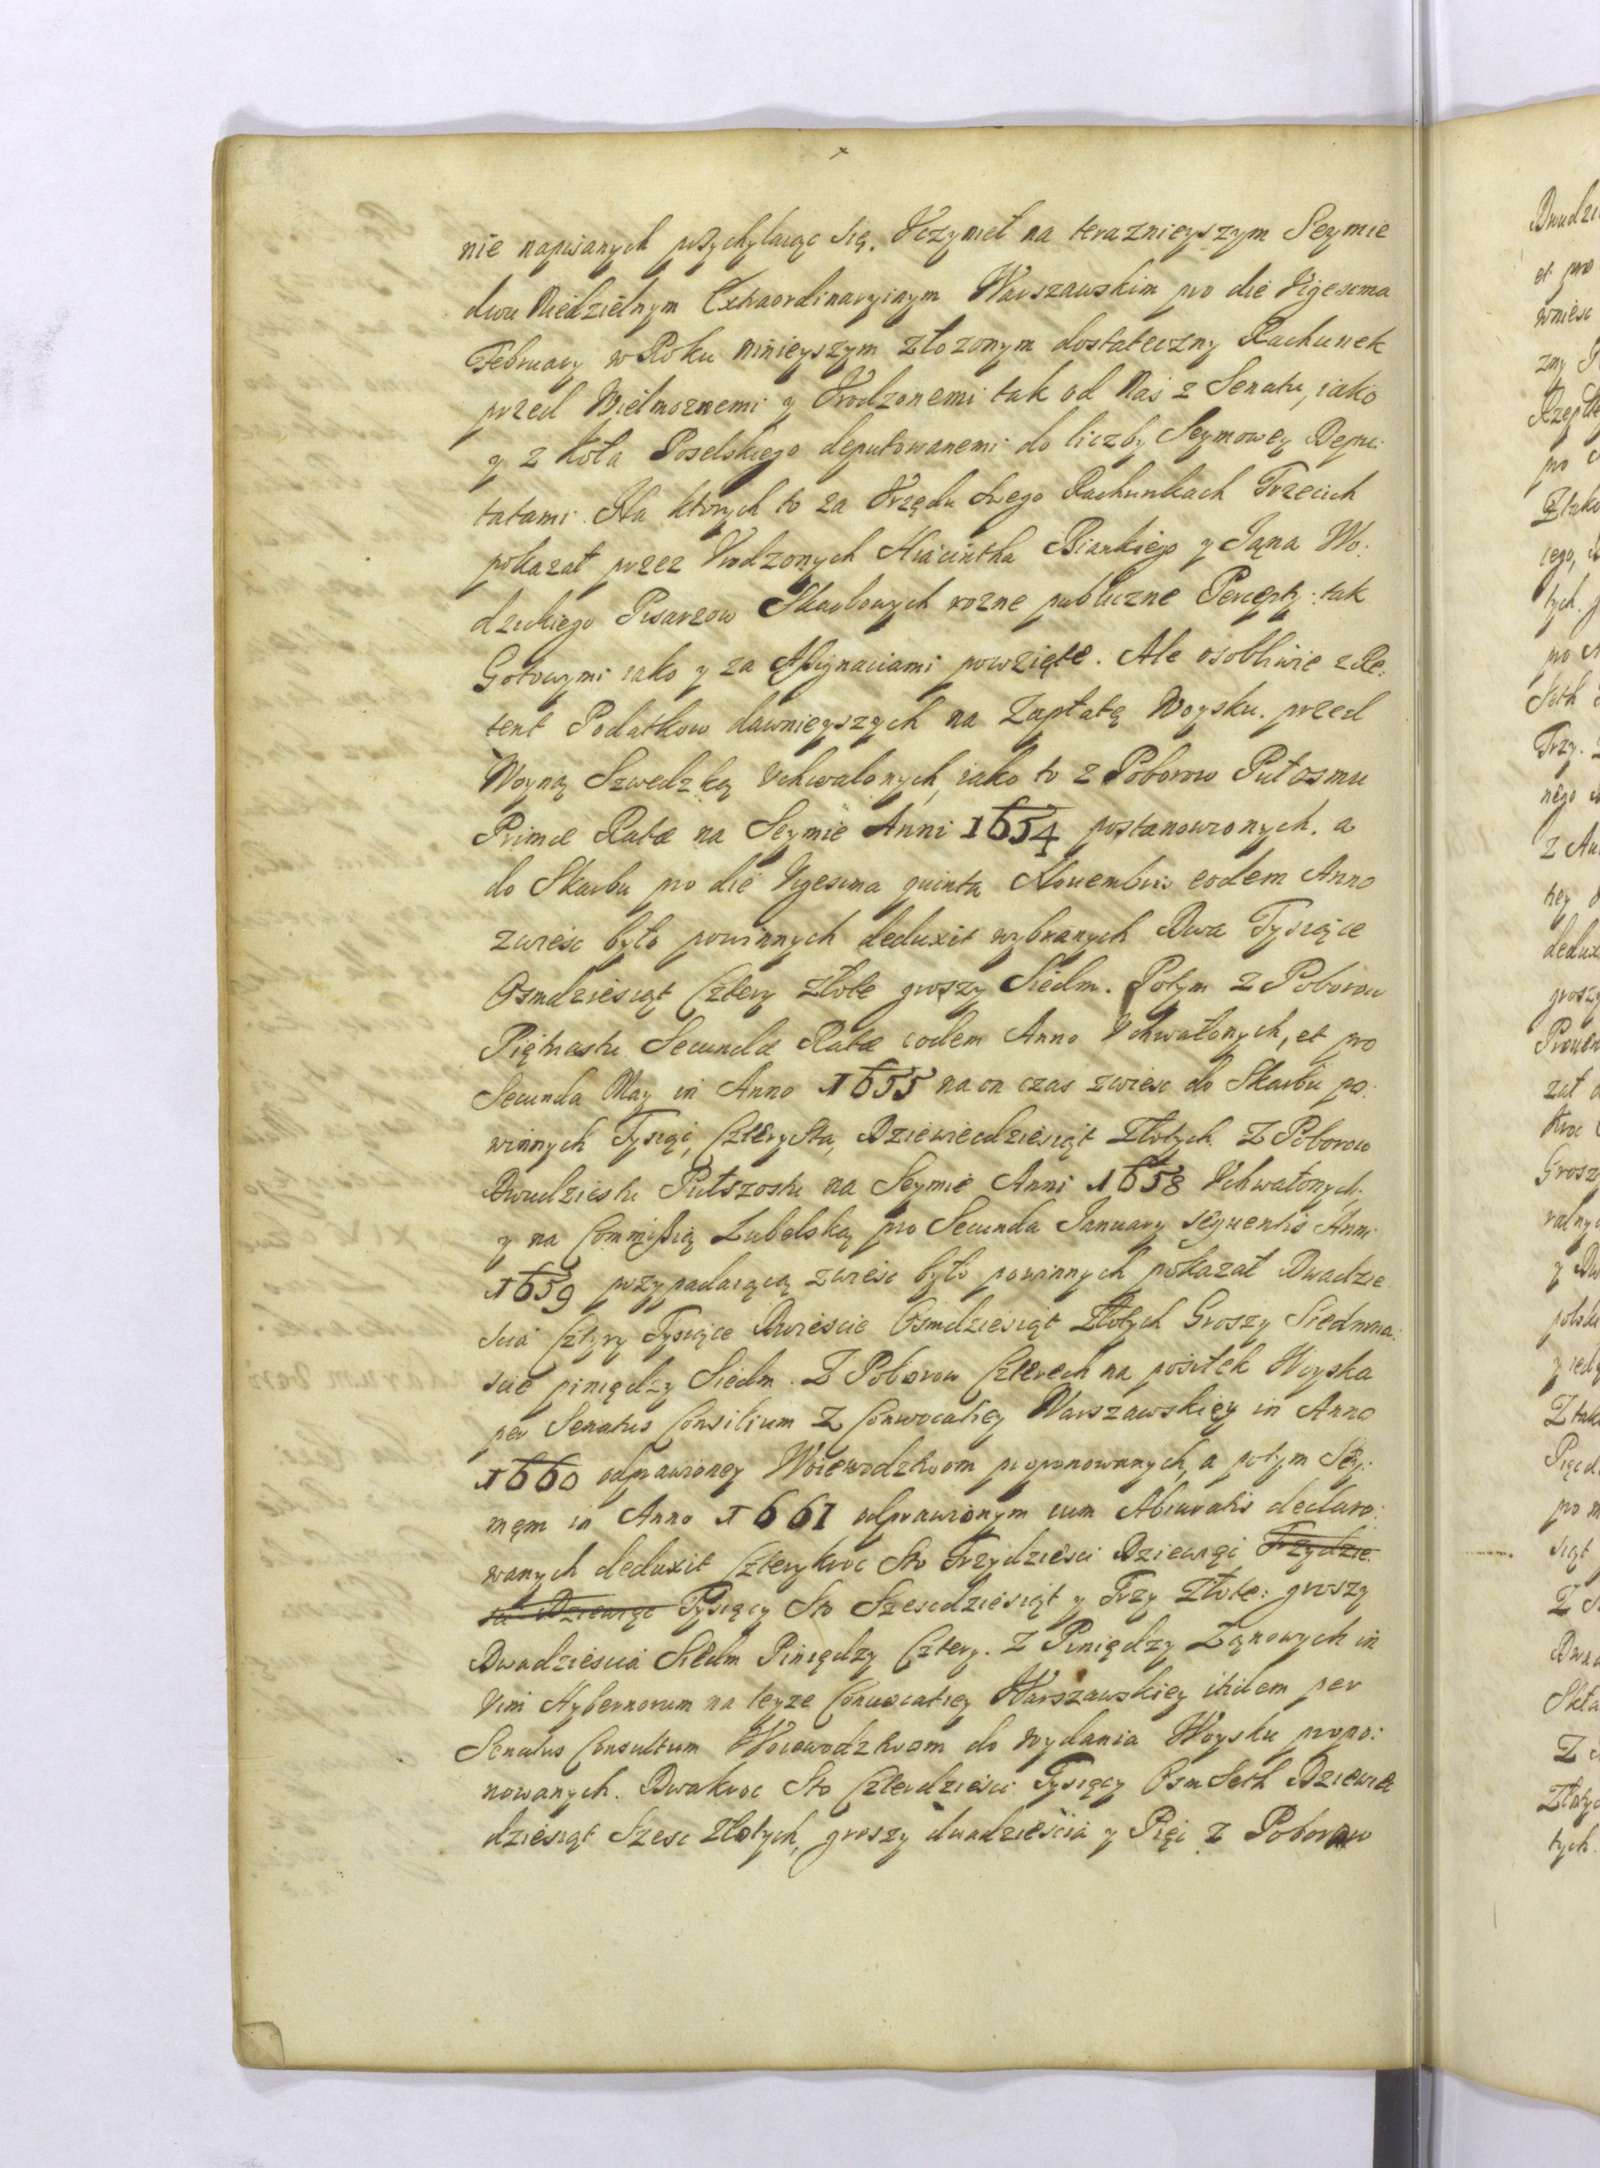 nie napisanych przychylaiąc się. Vczynił na teraznieyszym Seymie
dwu Niedzielnym Extraordinaryinym Warszawskim pro die Vigesima
February w Roku ninieyszym złozonym dostateczny Rachunek
przed Wielmoznemi y Vrodzonemi tak od Nas z Senatu, iako
y z Koła Poselskiego deputowanemi do liczby Seymowey Depu:
tatami. Na ktorych to za Vrzędu swego Rachunkach Trzecich
pokazał przez Vrodzonych Hiacintha Biankiego y Jana Wo:
dzickiego Pisarzow Skarbowych rozne publiczne Percepty: tak
Gotowymi iako y za Assignaciami powzięte. Ale osobliwie z Re:
tent Podatkow dawnieyszych na Zapłatę Woysku. przed
Woyną Szwedzką Vchwalonych, iako to z Poborow Pułosmu
Primæ Ratæ na Seymie Anni 1654 postanowionych. a
do Skarbu pro die Vigesima quinta Nouembris eodem Anno
zwiesc było powinnych deduxit wybranych Dwa Tysiące
Osmdziesiąt Cztery złote groszy Siedm. Potym z Poborow
Piętnastu Secundæ Ratæ eodem Anno Vchwałonych, et pro
Secunda May in Anno 1655 na on czas zwiesc do Skarbu po:
winnych Tysiąc, Czterysta, Dziewiecdziesiąt Złotych. Z Poborow
Dwudziestu Pułszostu na Seymie Anni 1658 Vchwałonych.
y na Commissią Lubelską pro Secunda January sequentis Anni
1659 przypadaiącą zwiesc było powinnych pokazał Dwadzie
scia Cztyry Tysiące Dwiescie Osmdziesiąt Złotych Groszy Siedmna:
scie piniędzy Siedm. Z Poborow Czterech na posiłek Woyska
per Senatus Consilium Z Conwocatiey Warszawskiey in Anno
1660 odprawioney Woiewodztwom proponowanych, a potym Sey:
mem in Anno 1661 odprawionym cum Abiuratis declaro:
wanych deduxit Czterykroc Sto Trzydziesci Dziewięc Trzydzie
sci Dziewięc Tysięcy Sto Szescdziesiąt y Trzy Złote: groszy
Dwadziescia Siedm Piniędzy Cztery. Z Piniędzy Łąnowych in
Vim Hybernorum na teyze Conuocatiey Warszawskiey itidem per
Senatus Consultum Woiewodztwom do wydania Woysku propo:
nowanych. Dwakroc Sto Czterdziesci Tysięcy Osm Seth Dziewięc
dziesiąt Szesc Złotych, groszy dwadziescia y Pięc z Poborow